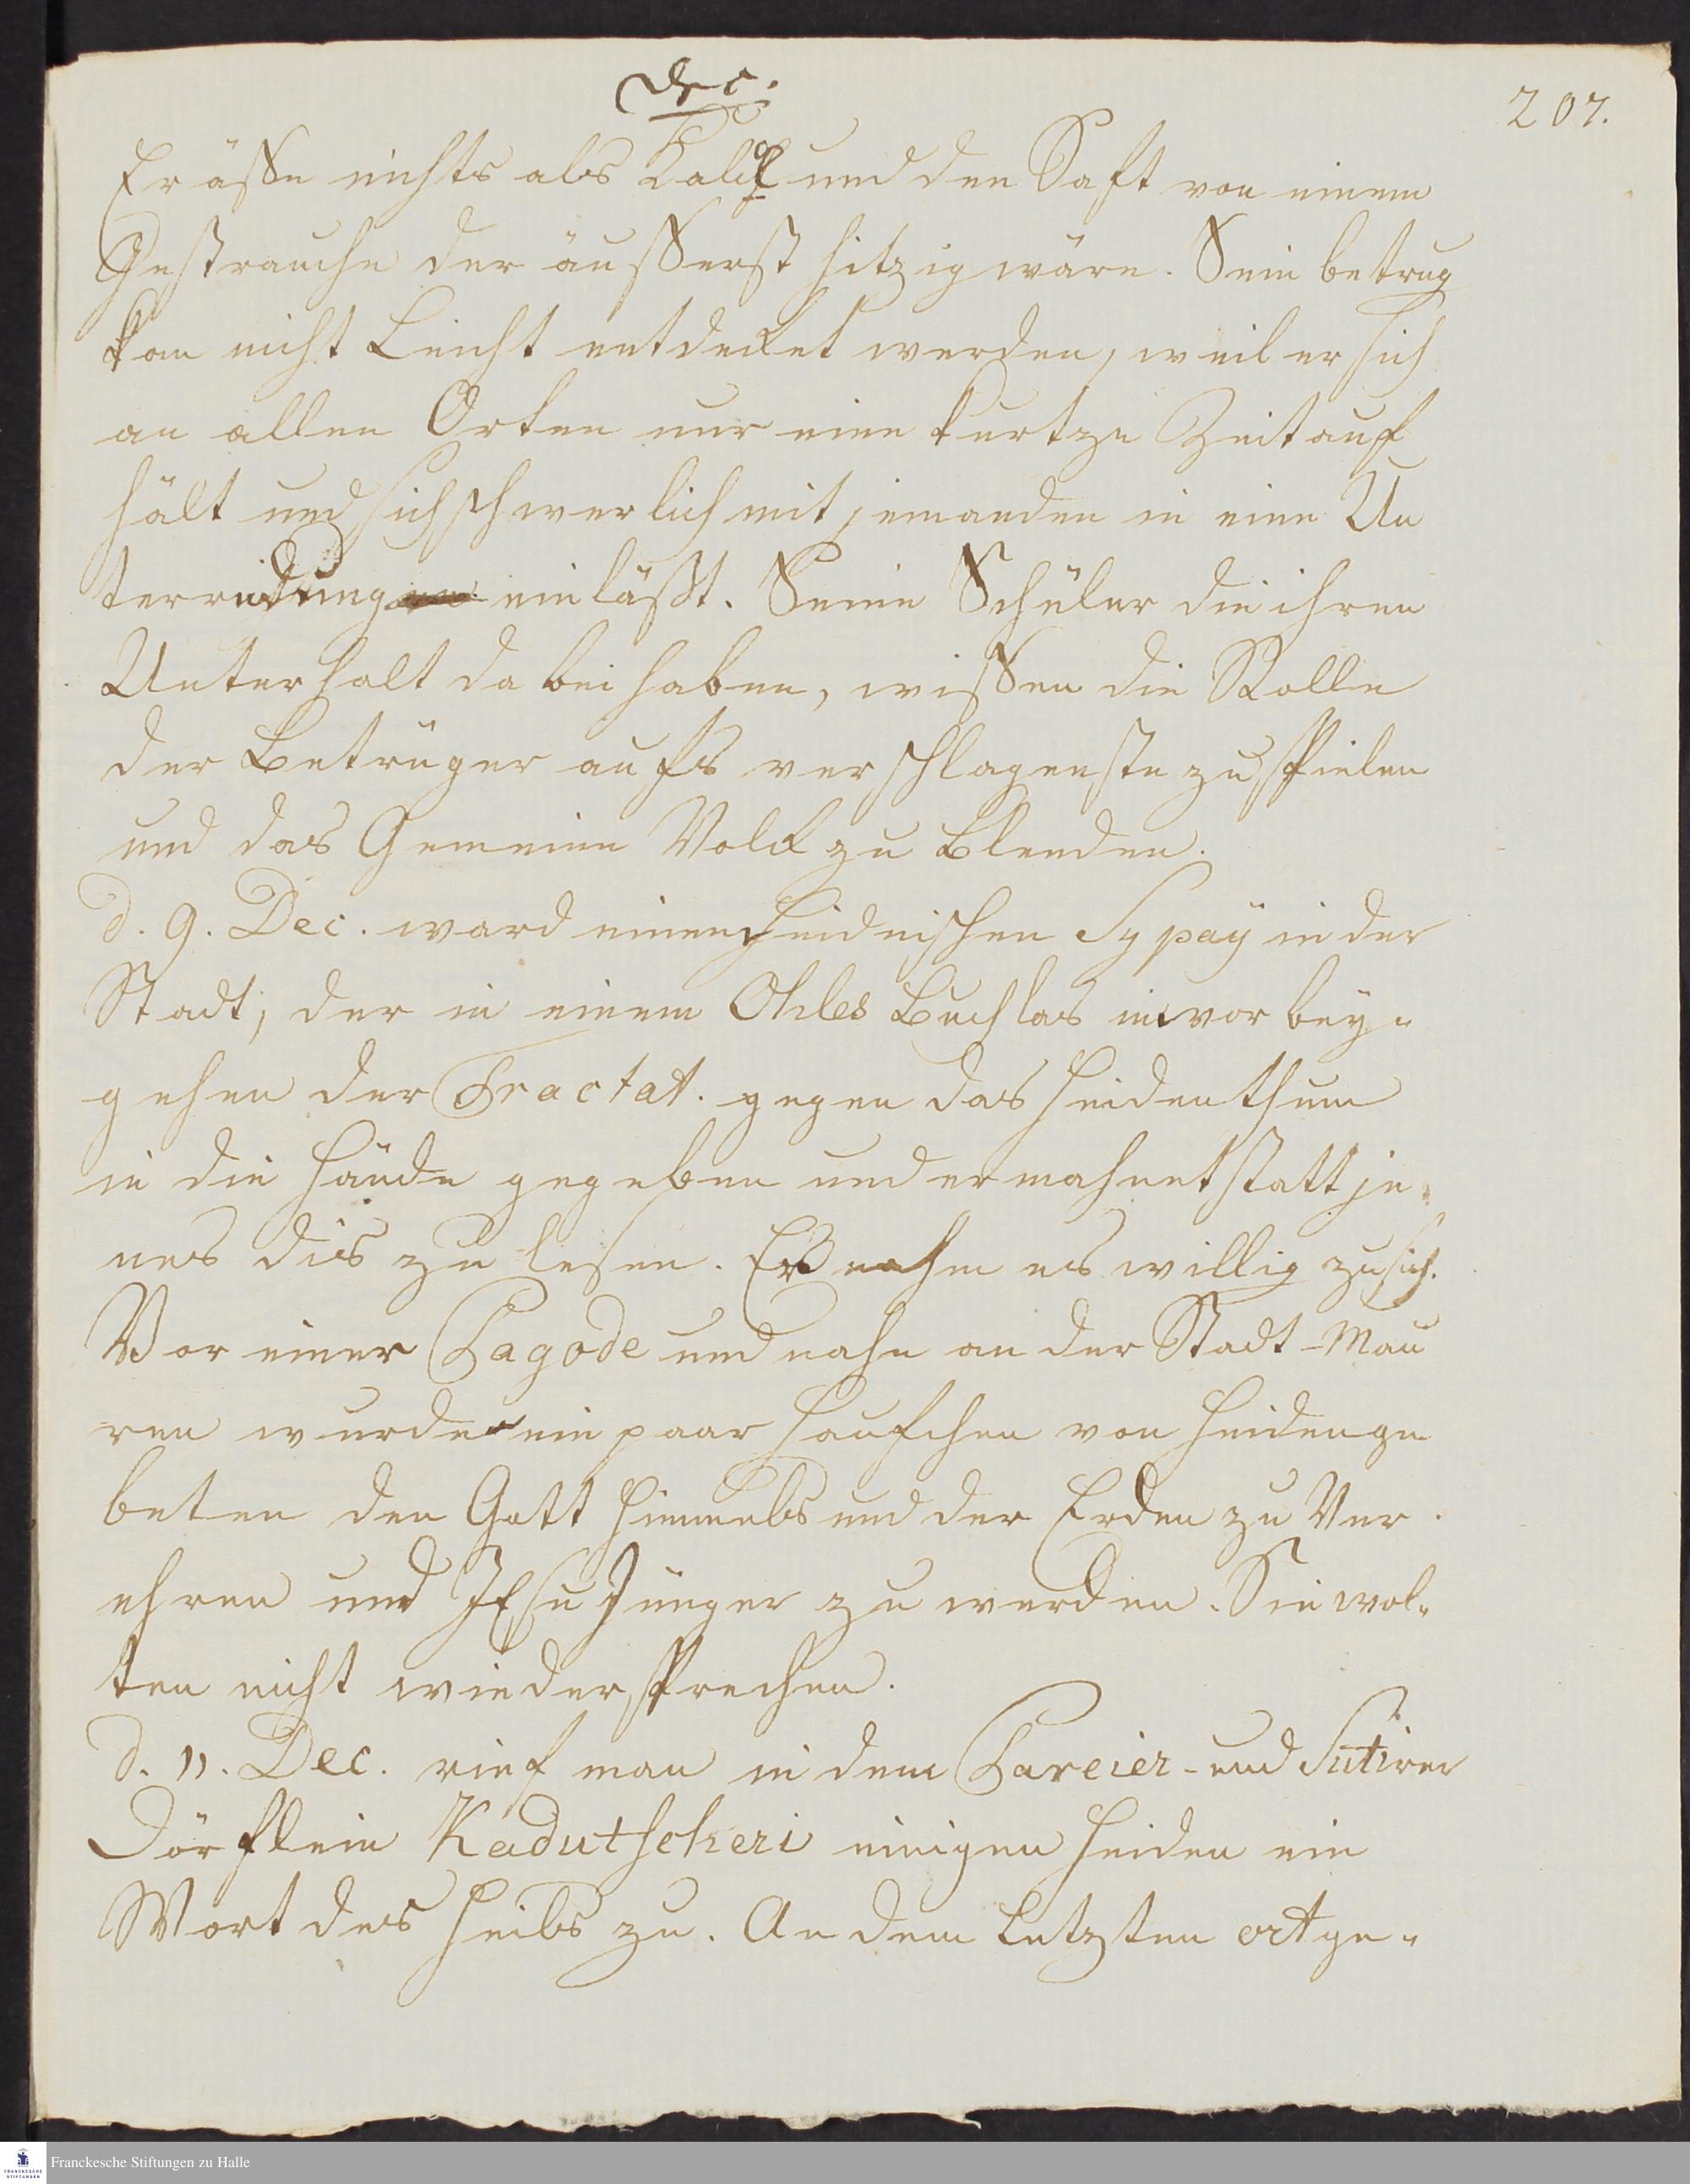 Dec.
207.
Er äße nichts als Kalck und den Saft von einem
Gestrauche der äußerst hitzig wäre. Sein betrug
kan nicht Leicht entdecket werden, weil er sich
an allen Orten nur eine kurtze Zeit auf
hält und sich schwerlich mit jemanden in eine Un
terredung einläßt. Seine Schüler die ihren
Unterhalt dabei haben, wißen die Rolle
der Betrüger aufs verschlagenste zu spielen
und das Gemeine Volck zu Blenden.
d. 9. Dec. ward einen heidnischen Sypay in der
Stadt, der in einem Oles Buch las im vorbey-
gehen der Tractat. gegen das Heidenthum
in die Hände gegeben und ermahnet statt je-
nes dis zu lesen. Er nahm es willig zu sich.
Vor einer Pagode und nahe an der Stadt-Mau
ren wurde ein paar Haufchen von Heiden ge
beten den Gott Himmels und der Erden zu Ver-
ehren und JEsu Jünger zu werden. Sie wol-
ten nicht wiedersprechen.
d. 11. Dec. rief man in dem Pareier- und Sutirer
Dörflein Kadutscheri einigen Heiden ein
Wort des Heils zu. An dem Letzten ort ge-
Franckesche Stiftungen zu Halle